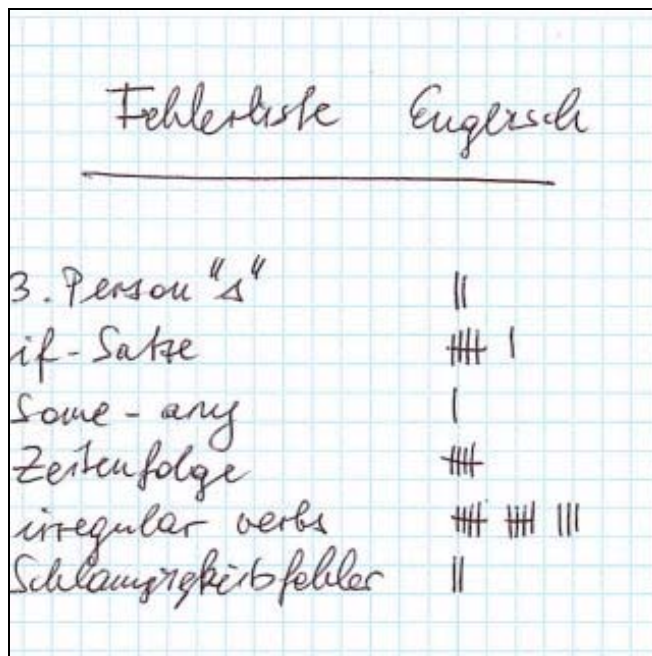 Fehlerliste Englisch
3. Person "s" ||
if-Sätze |||| |
some - any |
Zeitenfolge ||||
irregular verbs |||| |||| |||
Schlampigkeitsfehler ||